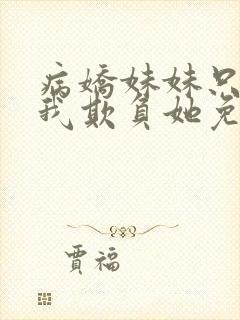 病嬌妹妹只
我欺負她免
賈福